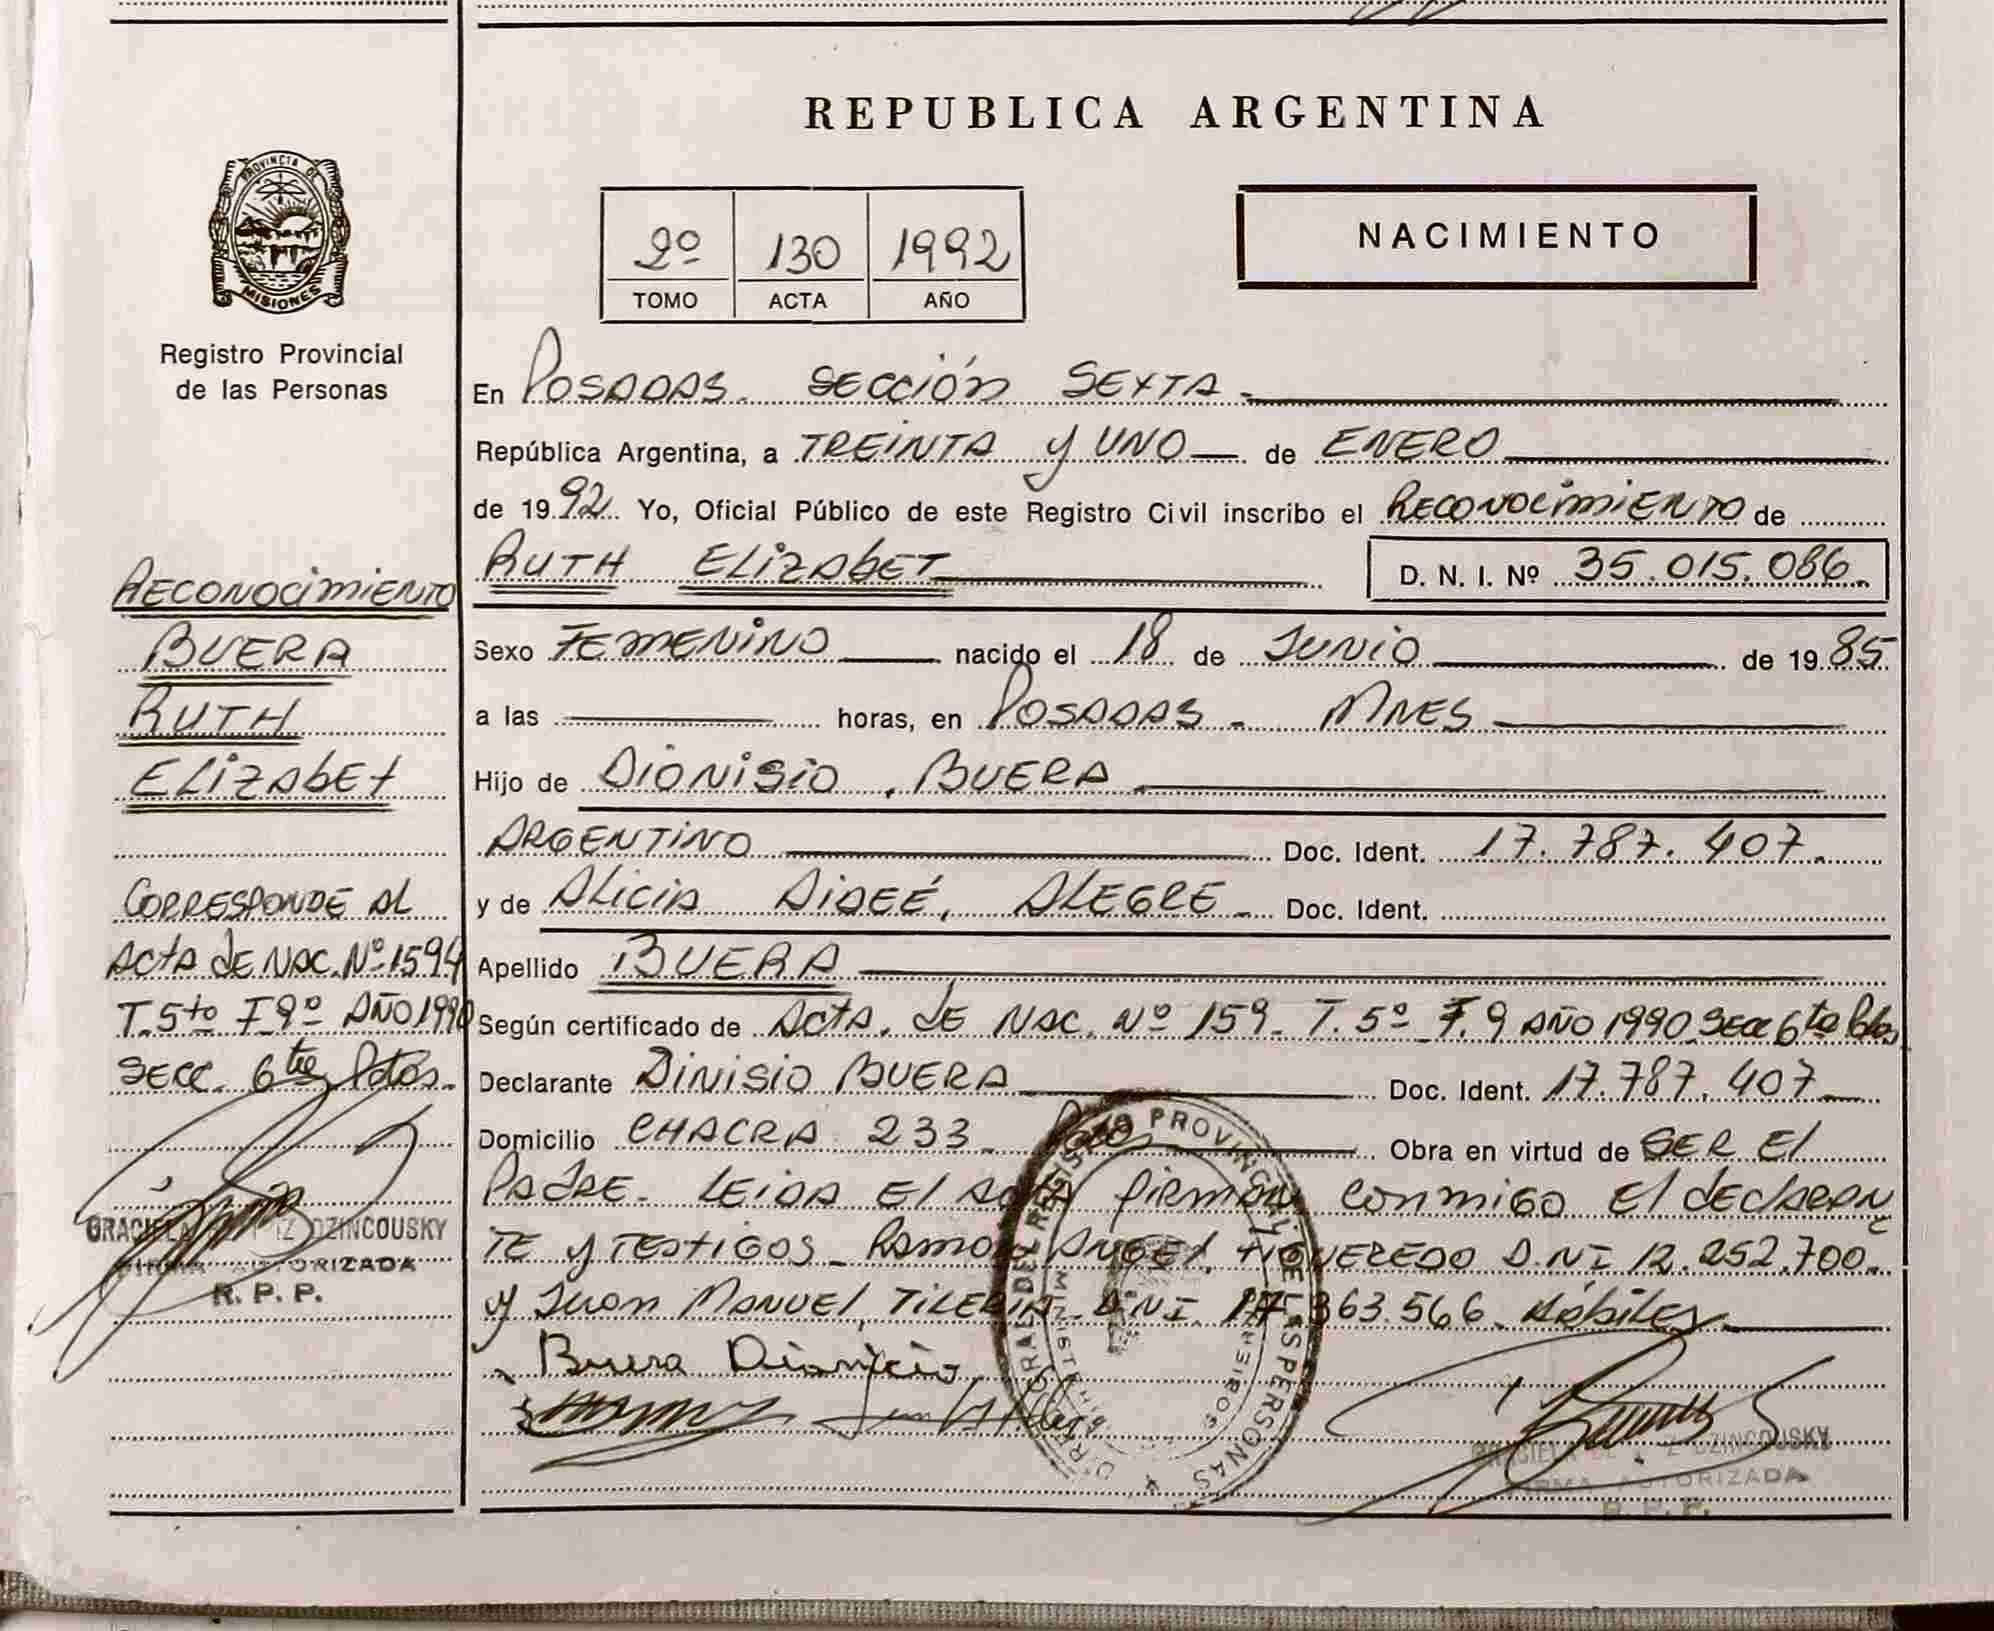 REPUBLICA ARGENTINA
PROVINCIA DE
MISIONES
Registro Provincial
de las Personas
2º 130 1992
TOMO ACTA AÑO
NACIMIENTO
En POSADAS. SECCIÓN SEXTA.
República Argentina, a TREINTA Y UNO de ENERO
de 1992. Yo, Oficial Público de este Registro Civil inscribo el RECONOCIMIENTO de
RUTH ELIZABET D. N. I. Nº 35.015.086.
Sexo FEMENINO nacido el 18 de JUNIO de 1985.
a las horas, en POSADAS - MNES
Hijo de DIONISIO, BUERA
ARGENTINO Doc. Ident. 17.787.407.
y de ALICIA AIDEÉ, ALEGRE Doc. Ident.
Apellido BUERA
Según certificado de ACTA. dE NAC. Nº 159. T. 5º F. 9 AÑO 1990. SECC 6ta Pdas
Declarante DINISIO BUERA Doc. Ident. 17.787.407
Domicilio CHACRA 233. Obra en virtud de SER El
PADRE. LEIDA El ACTA firman conmigo El dEclaran
TE y TEstigos. Ramon ANGEL, FIGUEREDO D.NI 12.252.700.
y Juan MANUEL, D.NI. 17.363.566. Hábiles.
Buera Dionicio
RECONOCIMIENTO
BUERA
RUTH
ELIZABEt
CORRESPONDE AL
ACTA dE NAC. Nº 1594
T. 5to F 9º AÑO 1990
SECC. 6ta Pdas.
GRACIELA IZ DZINCOUSKY
FIRMA AUTORIZADA
R. P. P.
REGISTRO PROVINCIAL DE LAS PERSONAS
GRACIELA Z DZINCOUSKY
FIRMA AUTORIZADA
R. P. P.